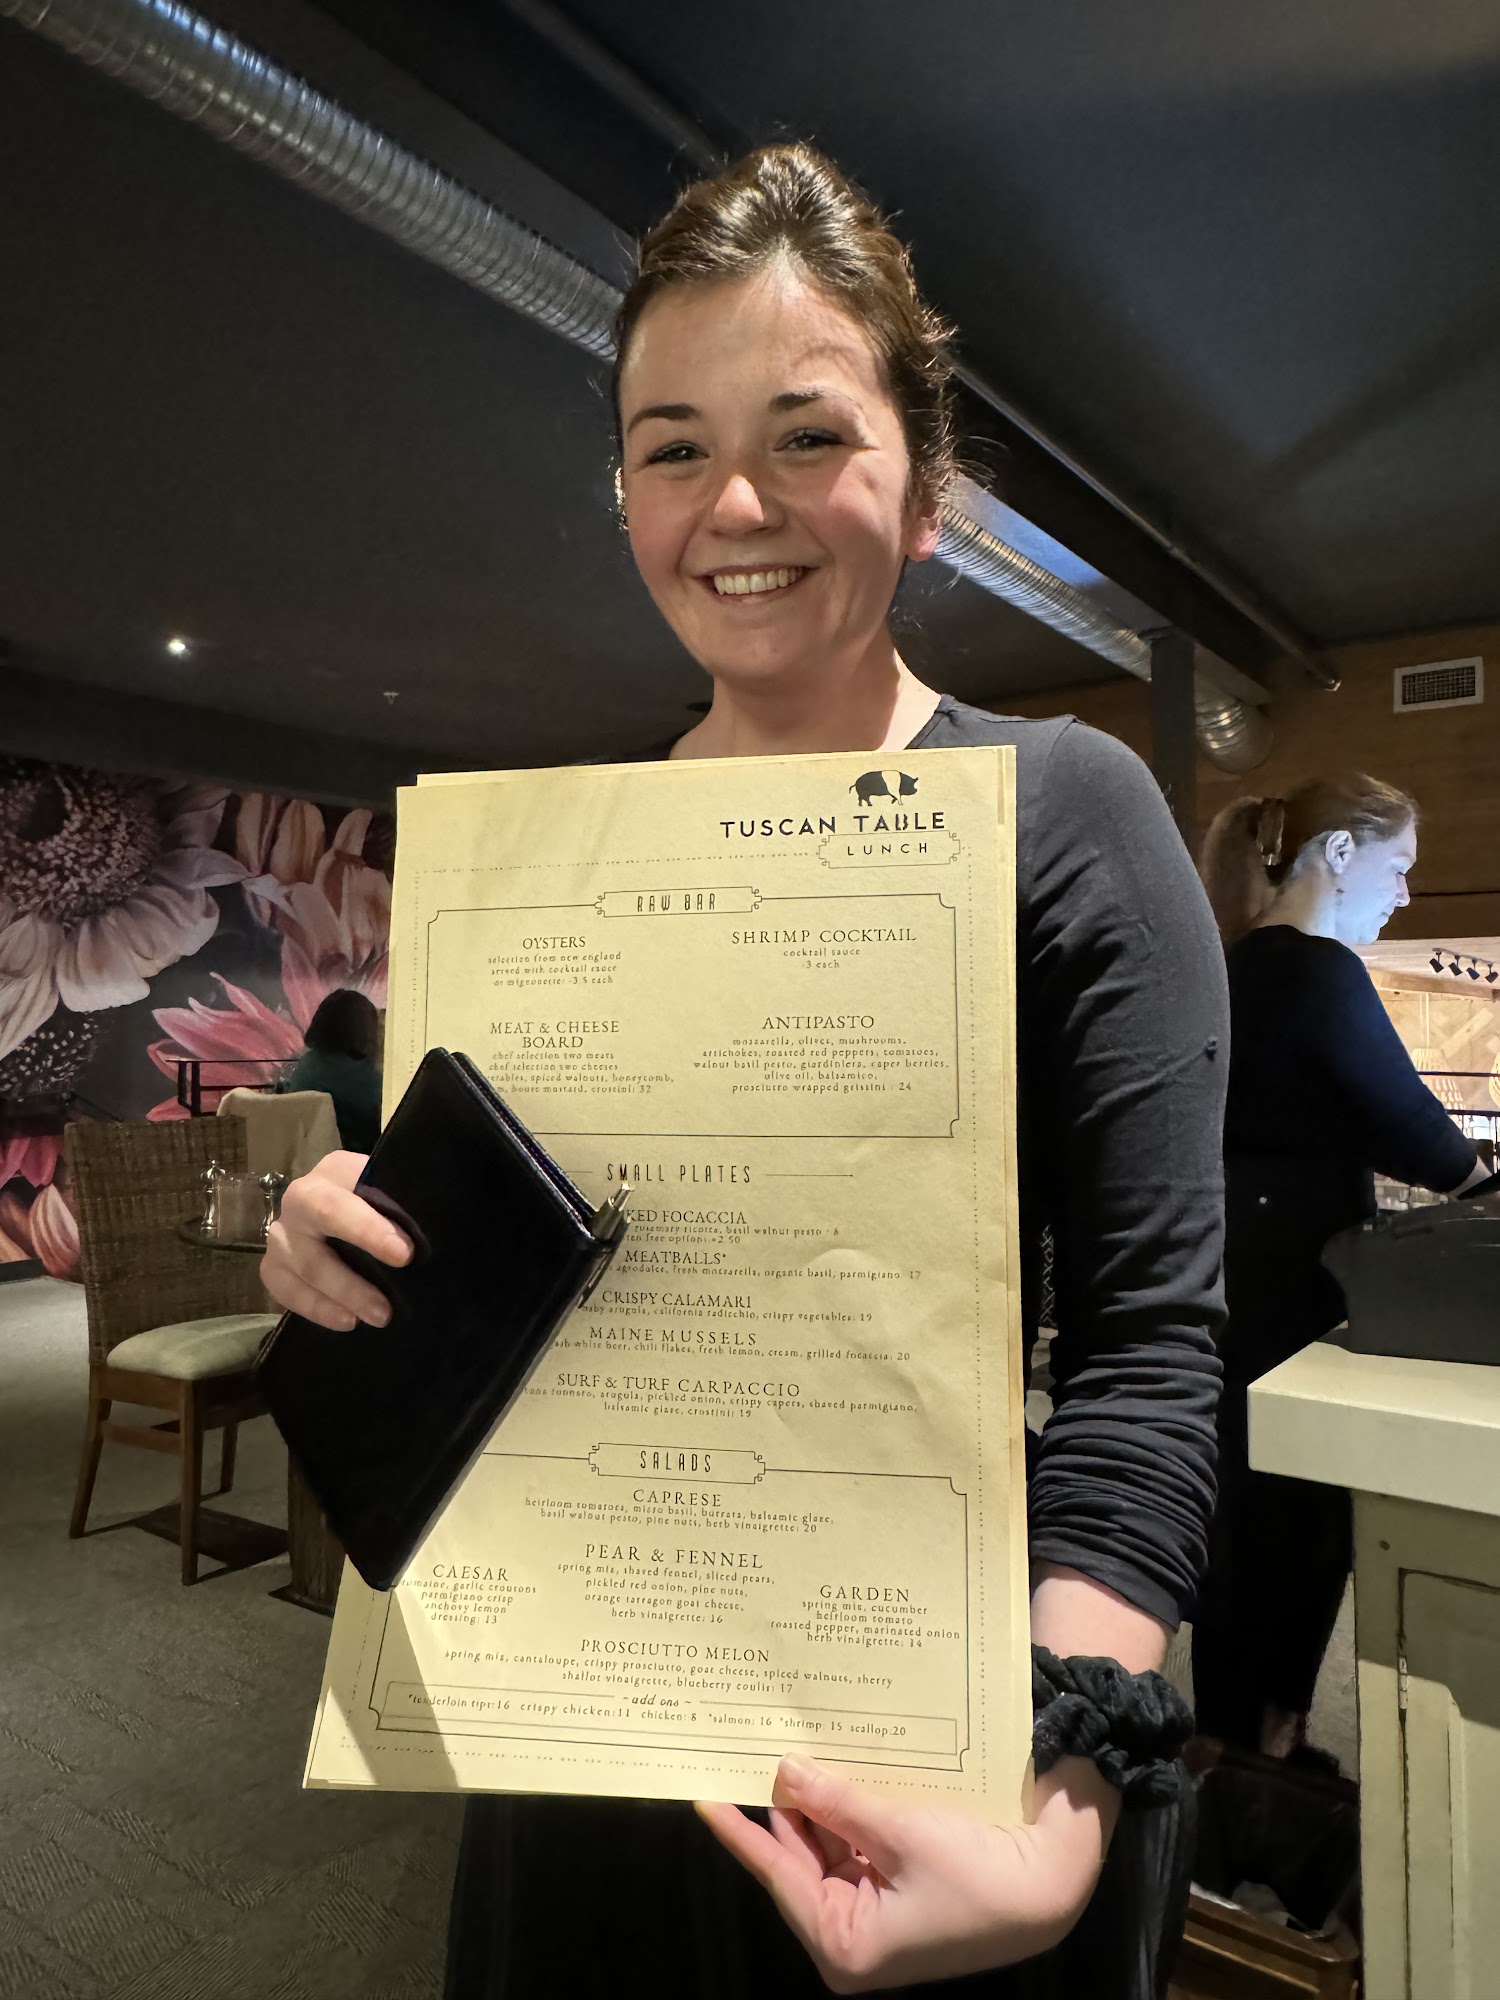 TUSCAN TABLE
LUNCH
RAW BAR
OYSTERS
selection from new england
served with cocktail sauce
or mignonette: -3.5 each
SHRIMP COCKTAIL
cocktail sauce
-3 each
MEAT & CHEESE
BOARD
chef selection two meats
chef selection two cheeses
spiced walnuts, honeycomb,
house mustard, crostini: 32
ANTIPASTO
mozzarella, olives, mushrooms,
artichokes, roasted red peppers, tomatoes,
walnut basil pesto, giardiniera, caper berries,
olive oil, balsamico,
prosciutto wrapped grissini : 24
SMALL PLATES
FOCACCIA
rosemary ricotta, basil walnut pesto - 8
free option: +2.50
MEATBALLS*
agrodolce, fresh mozzarella, organic basil, parmigiano: 17
CRISPY CALAMARI
baby arugula, california radicchio, crispy vegetables: 19
MAINE MUSSELS
white beer, chili flakes, fresh lemon, cream, grilled focaccia: 20
SURF & TURF CARPACCIO
tonnato, arugula, pickled onion, crispy capers, shaved parmigiano,
balsamic glaze, crostini: 19
SALADS
CAPRESE
heirloom tomatoes, micro basil, burrata, balsamic glaze,
basil walnut pesto, pine nuts, herb vinaigrette: 20
PEAR & FENNEL
spring mix, shaved fennel, sliced pears,
pickled red onion, pine nuts,
orange tarragon goat cheese,
herb vinaigrette: 16
CAESAR
romaine, garlic croutons
parmigiano crisp
anchovy lemon
dressing: 13
GARDEN
spring mix, cucumber
heirloom tomato
roasted pepper, marinated onion
herb vinaigrette: 14
PROSCIUTTO MELON
spring mix, cantaloupe, crispy prosciutto, goat cheese, spiced walnuts, sherry
shallot vinaigrette, blueberry coulis: 17
~ add ons ~
*tenderloin tips:16 crispy chicken:11 chicken: 8 *salmon: 16 *shrimp: 15 scallop:20